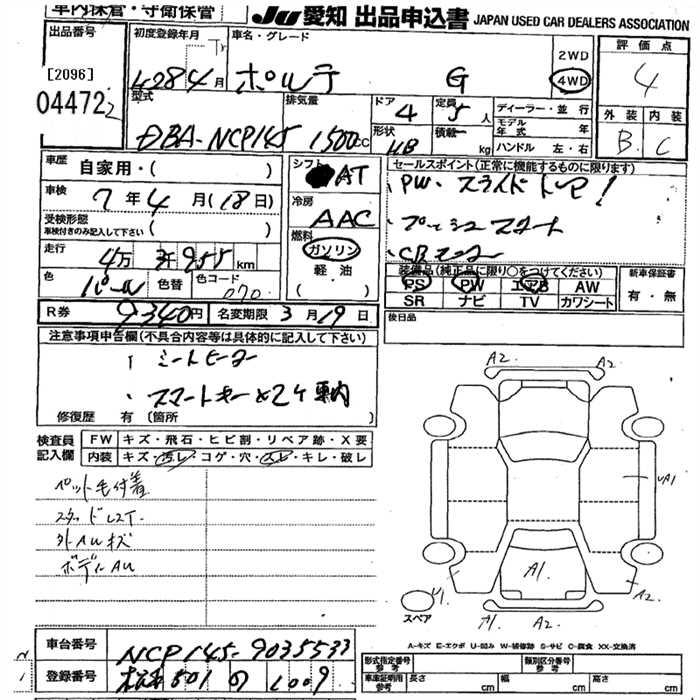 車内保管・守衛保管
JU 愛知 出品申込書 JAPAN USED CAR DEALERS ASSOCIATION
出品番号
[2096]
04472
初度登録年月
車名・グレード
428年4月
ポルテ G
2WD
4WD
評価点
4
外装 内装
B C
型式
DBA-NCP145
排気量
1500cc
ドア
4
形状
定員
5人
積載
kg
ディーラー・並行
モデル年式 年
ハンドル 左・右
車歴
自家用・( )
車検
7年4月(18日)
受検形態
車検付きのみ記入して下さい ( )
走行
4万3千955km
色
パール
色替
色コード
070
シフト
AT
冷房
AAC
燃料
ガソリン
軽油
( )
セールスポイント(正常に機能するものに限ります)
PW.スライドドア!
プッシュスタート
装備品(純正品に限り○をつけてください)
PS PW エアB AW
SR ナビ TV カワシート
新車保証書
有・無
後日品
R券
9340円
名変期限 3月19日
注意事項申告欄(不具合内容等は具体的に記入して下さい)
シートヒーター
スマートキー×2ケ 車内
修復歴 有 (箇所
検査員記入欄
FW キズ・飛石・ヒビ割・リペア跡・X要
内装 キズ・汚レ・コゲ・穴・スレ・キレ・破レ
ペット毛付着
スタッドレスT.
外AUキズ
ボディAU
A2. A2
UA1
A1.
スペア
A1. A2
A2
A-キズ E-エクボ U-凹み W-補修跡 S-サビ C-腐食 XX-交換済
車台番号
NCP145-9035533
登録番号
501 の 1009
形式指定番号 参考
類別区分番号 参考
車庫証明用 参考
長さ cm
幅 cm
高さ cm